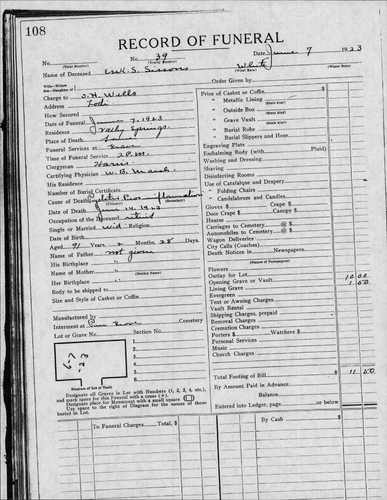 108
RECORD OF FUNERAL
No. 39 Date June 7 1923
(Total Number) (Yearly Number)
Name of Deceased Esek S. Sissons White
(What Race) (Where Born)
Charge to J. H. Wells
Address Lodi
How Secured
Date of Funeral June 7, 1923
Residence Valley Springs
Place of Death
Funeral Services at Grave
Time of Funeral Service 2 P.M.
Clergyman Harris
Certifying Physician W. B.
His Residence
Number of Burial Certificate
Cause of Death
(Primary) (Secondary)
Date of Death 1923
Occupation of the Deceased retired
Single or Married wid Religion
Date of Birth
Aged 91 Years, 2 Months, 28 Days.
Name of Father not given
His Birthplace "
Name of Mother "
(Maiden Name)
Her Birthplace "
Body to be shipped to
Size and Style of Casket or Coffin
Manufactured by
Interment at Pine Grove Cemetery
Lot or Grave No. Section No.
6-7
'23
1.
2.
3.
4.
5.
6.
Diagram of Lot or Vault
Designate all Graves in Lot with Numbers (1, 2, 3, 4, etc.),
and mark space for this Funeral with a cross (+)
Designate place for Monument with a small square
Use space to right of Diagram for names of those
buried in Lot.
Order Given by
Price of Casket or Coffin
" Metallic Lining
(State Kind)
" Outside Box
(State Kind)
" Grave Vault
(State Kind)
" Burial Robe
(State Kind)
" Burial Slippers and Hose
Engraving Plate
Embalming Body (with Fluid)
Washing and Dressing
Shaving
Disinfecting Rooms
Use of Catafalque and Drapery
" Folding Chairs
" Candelabrum and Candles
Gloves $ Crape $
Door Crape $ Canopy $
Hearse
Carriages to Cemetery @ $
Automobiles to Cemetery @ $
Wagon Deliveries
City Calls (Coaches)
Death Notices in Newspapers.
(Names of Newspapers)
Flowers
Outlay for Lot 10 00
Opening Grave or Vault 1 50
Lining Grave
Evergreen
Tent or Awning Charges
Vault Rental
Shipping Charges, prepaid
Removal Charges
Cremation Charges
Porters $ Watchers $
Personal Services
Music
Church Charges
Total Footing of Bill $ 11 50
By Amount Paid in Advance
Balance
Entered into Ledger, page or below.
To Funeral Charges, Total $
By Cash $